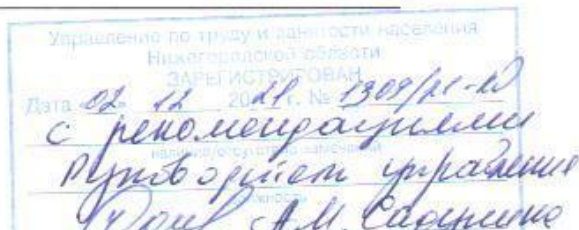 Управление по труду и занятости населения
Нижегородской области
ЗАРЕГИСТРИРОВАН
Дата «02» 12 2021 г. №
с рекомендациями
наличие/отсутствие замечаний
Руководитель управления
должность
А.М.